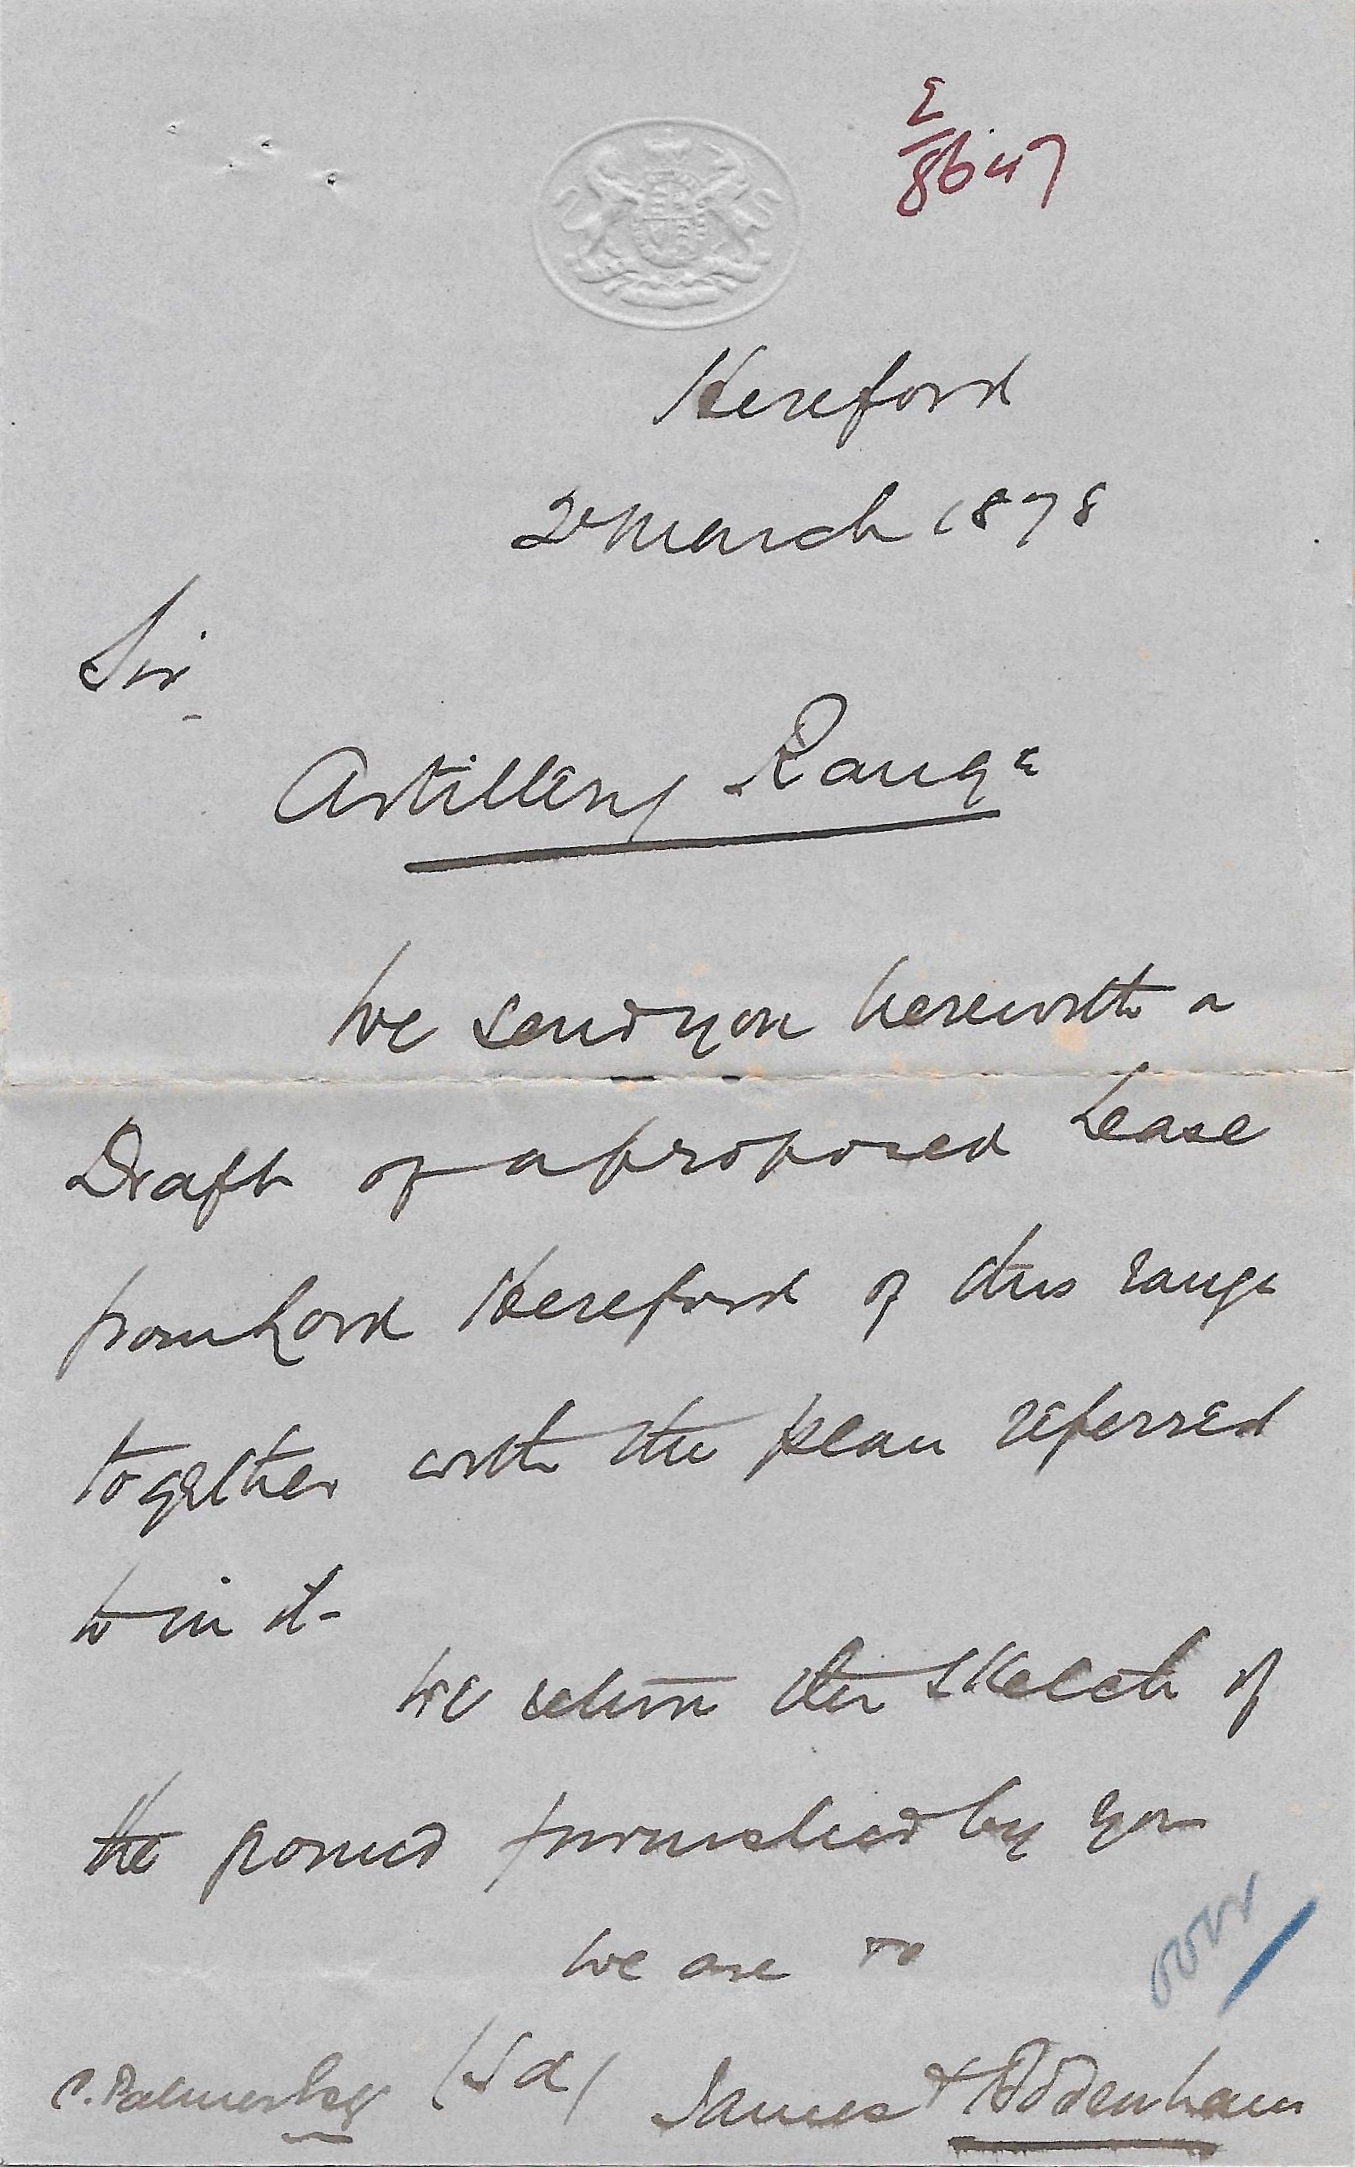 E
8647
Hereford
2d March 1878
Sir
Artillery Range
We send you herewith a
Draft of a proposed Lease
from Lord Hereford of this range
together with the plan referred
to in it-
We return the sketch of
the ground furnished by you
We are
over
C. Palmer Esq (Sd) James & Bodenham